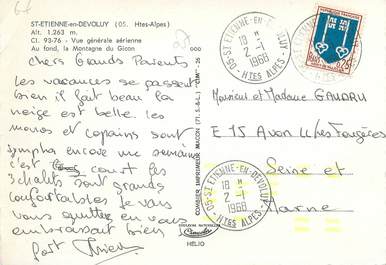 ST-ETIENNE-en-DEVOLUY (05. Htes-Alpes)
Alt. 1.263 m.
Cl. 93-76 - Vue générale aérienne
Au fond, la Montagne du Gicon
000
chers Grands Parents
les vacances se passent
bien il fait beau la
neige est belle. Les
monos et copains sont
sympha encore une semaine
c'est court les
3 chalets sont grands
confortables je vais
vous quitter en vous
embrassant bien
fort Thierry
COMBIER IMPRIMEUR MACON (71.S.-&-L.) "CIM"
COULEURS NATURELLES
HÉLIO
05-ST ETIENNE-EN-DEVOLUY
18 H
2-1
1968
HTES ALPES
MONT-DE-MARSAN
0,25
Monsieur et Madame GAUDRU
E 15 Avon les Fougères
Seine et
Marne
05-ST ETIENNE-EN-DEVOLUY
18 H
2-1
1968
HTES ALPES